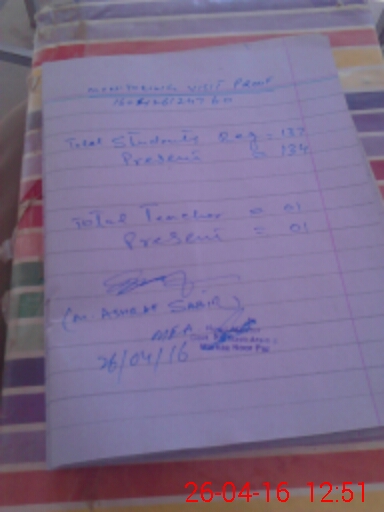 MONITORING VISIT PROOF
Total Students Reg = 137
Present = 134
Total Teacher = 01
Present = 01
(M. ASHRAF SABIR)
MEA
26/04/16
26-04-16 12:51